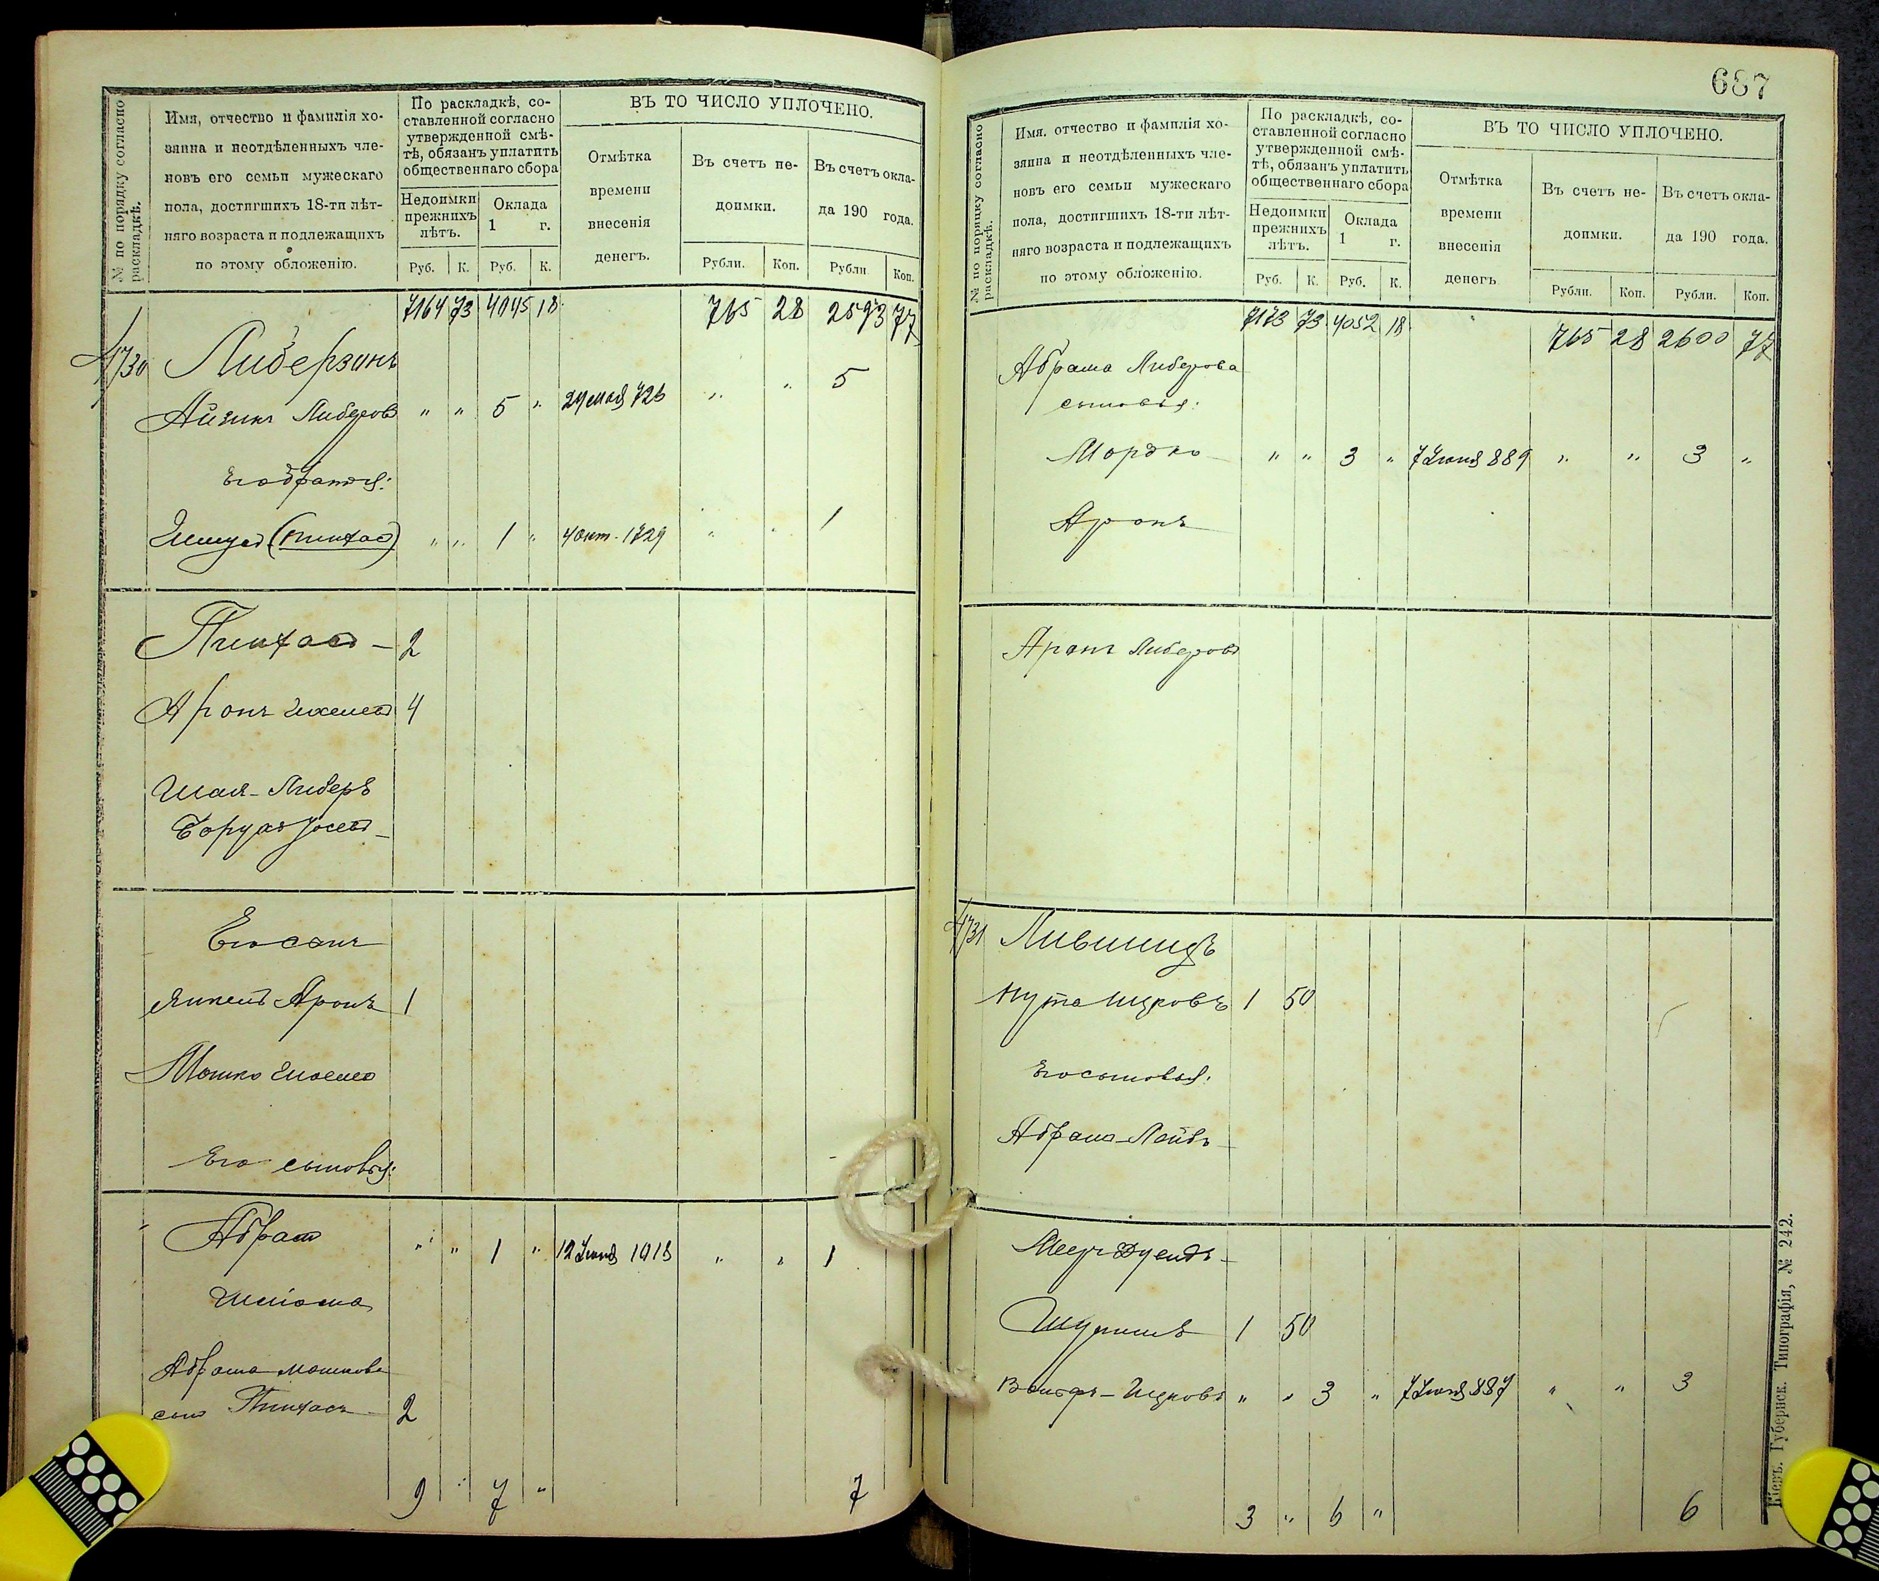 687
№ по порядку согласно раскладкѣ.
Имя, отчество и фамилія хо-
зяина и неотдѣленныхъ чле-
новъ его семьи мужескаго
пола, достигшихъ 18-ти лѣт-
няго возраста и подлежащихъ
по этому обложенію.
По раскладкѣ, со-
ставленной согласно
утвержденной смѣ-
тѣ, обязанъ уплатить
общественнаго сбора
Недоимки
прежнихъ
лѣтъ.
Оклада
1 г.
Руб. К. Руб. К.
ВЪ ТО ЧИСЛО УПЛОЧЕНО.
Отмѣтка
времени
внесенія
денегъ.
Въ счетъ не-
доимки.
Въ счетъ окла-
да 190 года.
Рубли. Коп. Рубли Коп.
7164 73 4045 18 765 28 2593 77
1730 Либерзонъ
Айзикъ Либеровъ " " 5 " 24 мая 726 " " 5
Его братья:
(Пинхас) " " 1 " 4 окт. 1729 " " 1
Пинхасъ - 2
Аронъ 4
Шая-Либеръ
Борухъ Іосевъ
Его сынъ
Янкель Аронъ 1
Мошко
Его сыновья:
Абрам " " 1 " 12 Іюня 1013 " " 1
Шліома
Абрама Мошкова
сынъ Пинхасъ 2
9 " 7 " 7
№ по порядку согласно раскладкѣ.
Имя, отчество и фамилія хо-
зяина и неотдѣленныхъ чле-
новъ его семьи мужескаго
пола, достигшихъ 18-ти лѣт-
няго возраста и подлежащихъ
по этому обложенію.
По раскладкѣ, со-
ставленной согласно
утвержденной смѣ-
тѣ, обязанъ уплатить
общественнаго сбора
Недоимки
прежнихъ
лѣтъ.
Оклада
1 г.
Руб. К. Руб. К.
ВЪ ТО ЧИСЛО УПЛОЧЕНО.
Отмѣтка
времени
внесенія
денегъ
Въ счетъ не-
доимки.
Въ счетъ окла-
да 190 года.
Рубли. Коп. Рубли. Коп.
7173 73 4052 18 765 28 2600 77
Абрама Либерова
сыновья:
Мордко " " 3 " 7 Іюня 889 " " 3 "
Аронъ
Аронъ Либеровъ
1731 Лившицъ
Нута Ицковъ 1 50
Его сыновья:
Абрамъ-Лейбъ
Меер
1 50
Вольфъ-Ицковъ " " 3 " 7 Іюня 887 " " 3
3 " 6 " 6
Кіевъ. Губернск. Типографія, № 242.